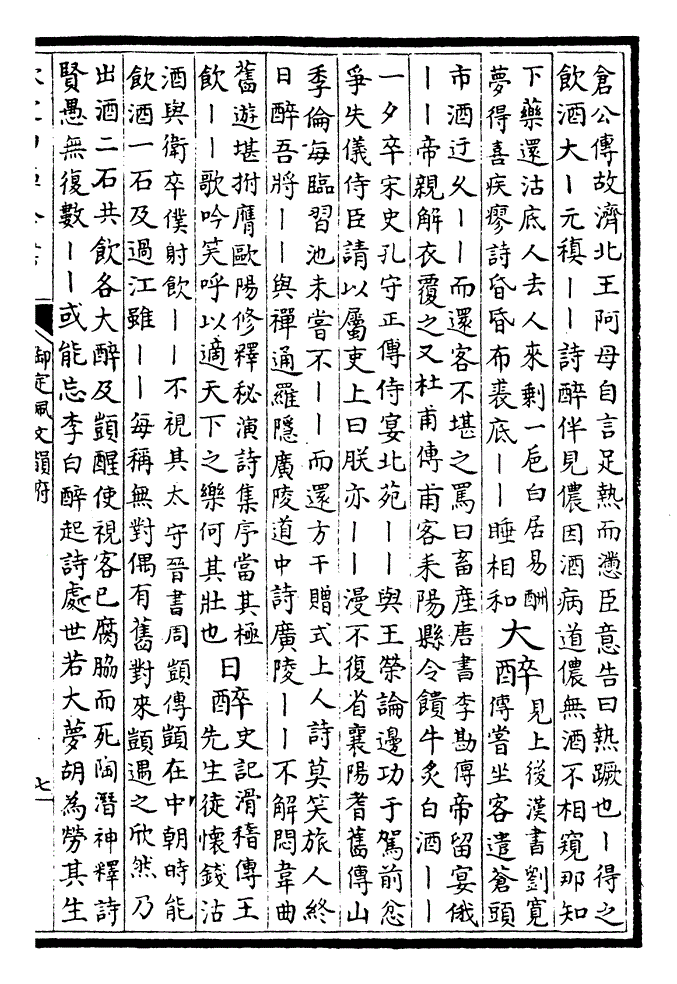 倉公傳故濟北王阿母自言足熱而懣臣意告曰熱蹶也丨得之
飲酒大丨元稹丨丨詩醉伴見儂因酒病道儂無酒不相窺那知
下藥還沽底人去人來剩一巵白居易酬
夢得喜疾瘳詩昏昏布裘底丨丨睡相和
大醉
見上後漢書劉寛
傳嘗坐客遣蒼頭
市酒迂久丨丨而還客不堪之罵曰畜産唐書李勣傳帝留宴俄
丨丨帝親解衣覆之又杜甫傳甫客耒陽縣令饋牛炙白酒丨丨
一夕卒宋史孔守正傳侍宴北苑丨丨與王榮論邊功于駕前忿
爭失儀侍臣請以屬吏上曰朕亦丨丨漫不復省襄陽耆舊傳山
季倫每臨習池未嘗不丨丨而還方干贈式上人詩莫笑旅人終
日醉吾將丨丨與禪通羅隱廣陵道中詩廣陵丨丨不解悶韋曲
舊遊堪拊膺歐陽修釋秘演詩集序當其極
飲丨丨歌吟笑呼以適天下之樂何其壯也
日醉
史記滑稽傳王
先生徒懷錢沽
酒與衛卒僕射飲丨丨不視其太守晉書周顗傳顗在中朝時能
飲酒一石及過江雖丨丨每稱無對偶有舊對來顗遇之欣然乃
出酒二石共飲各大醉及顗醒使視客已腐脇而死陶潛神釋詩
賢愚無復數丨丨或能忘李白醉起詩處世若大夢胡為勞其生
御定佩文韻府
七